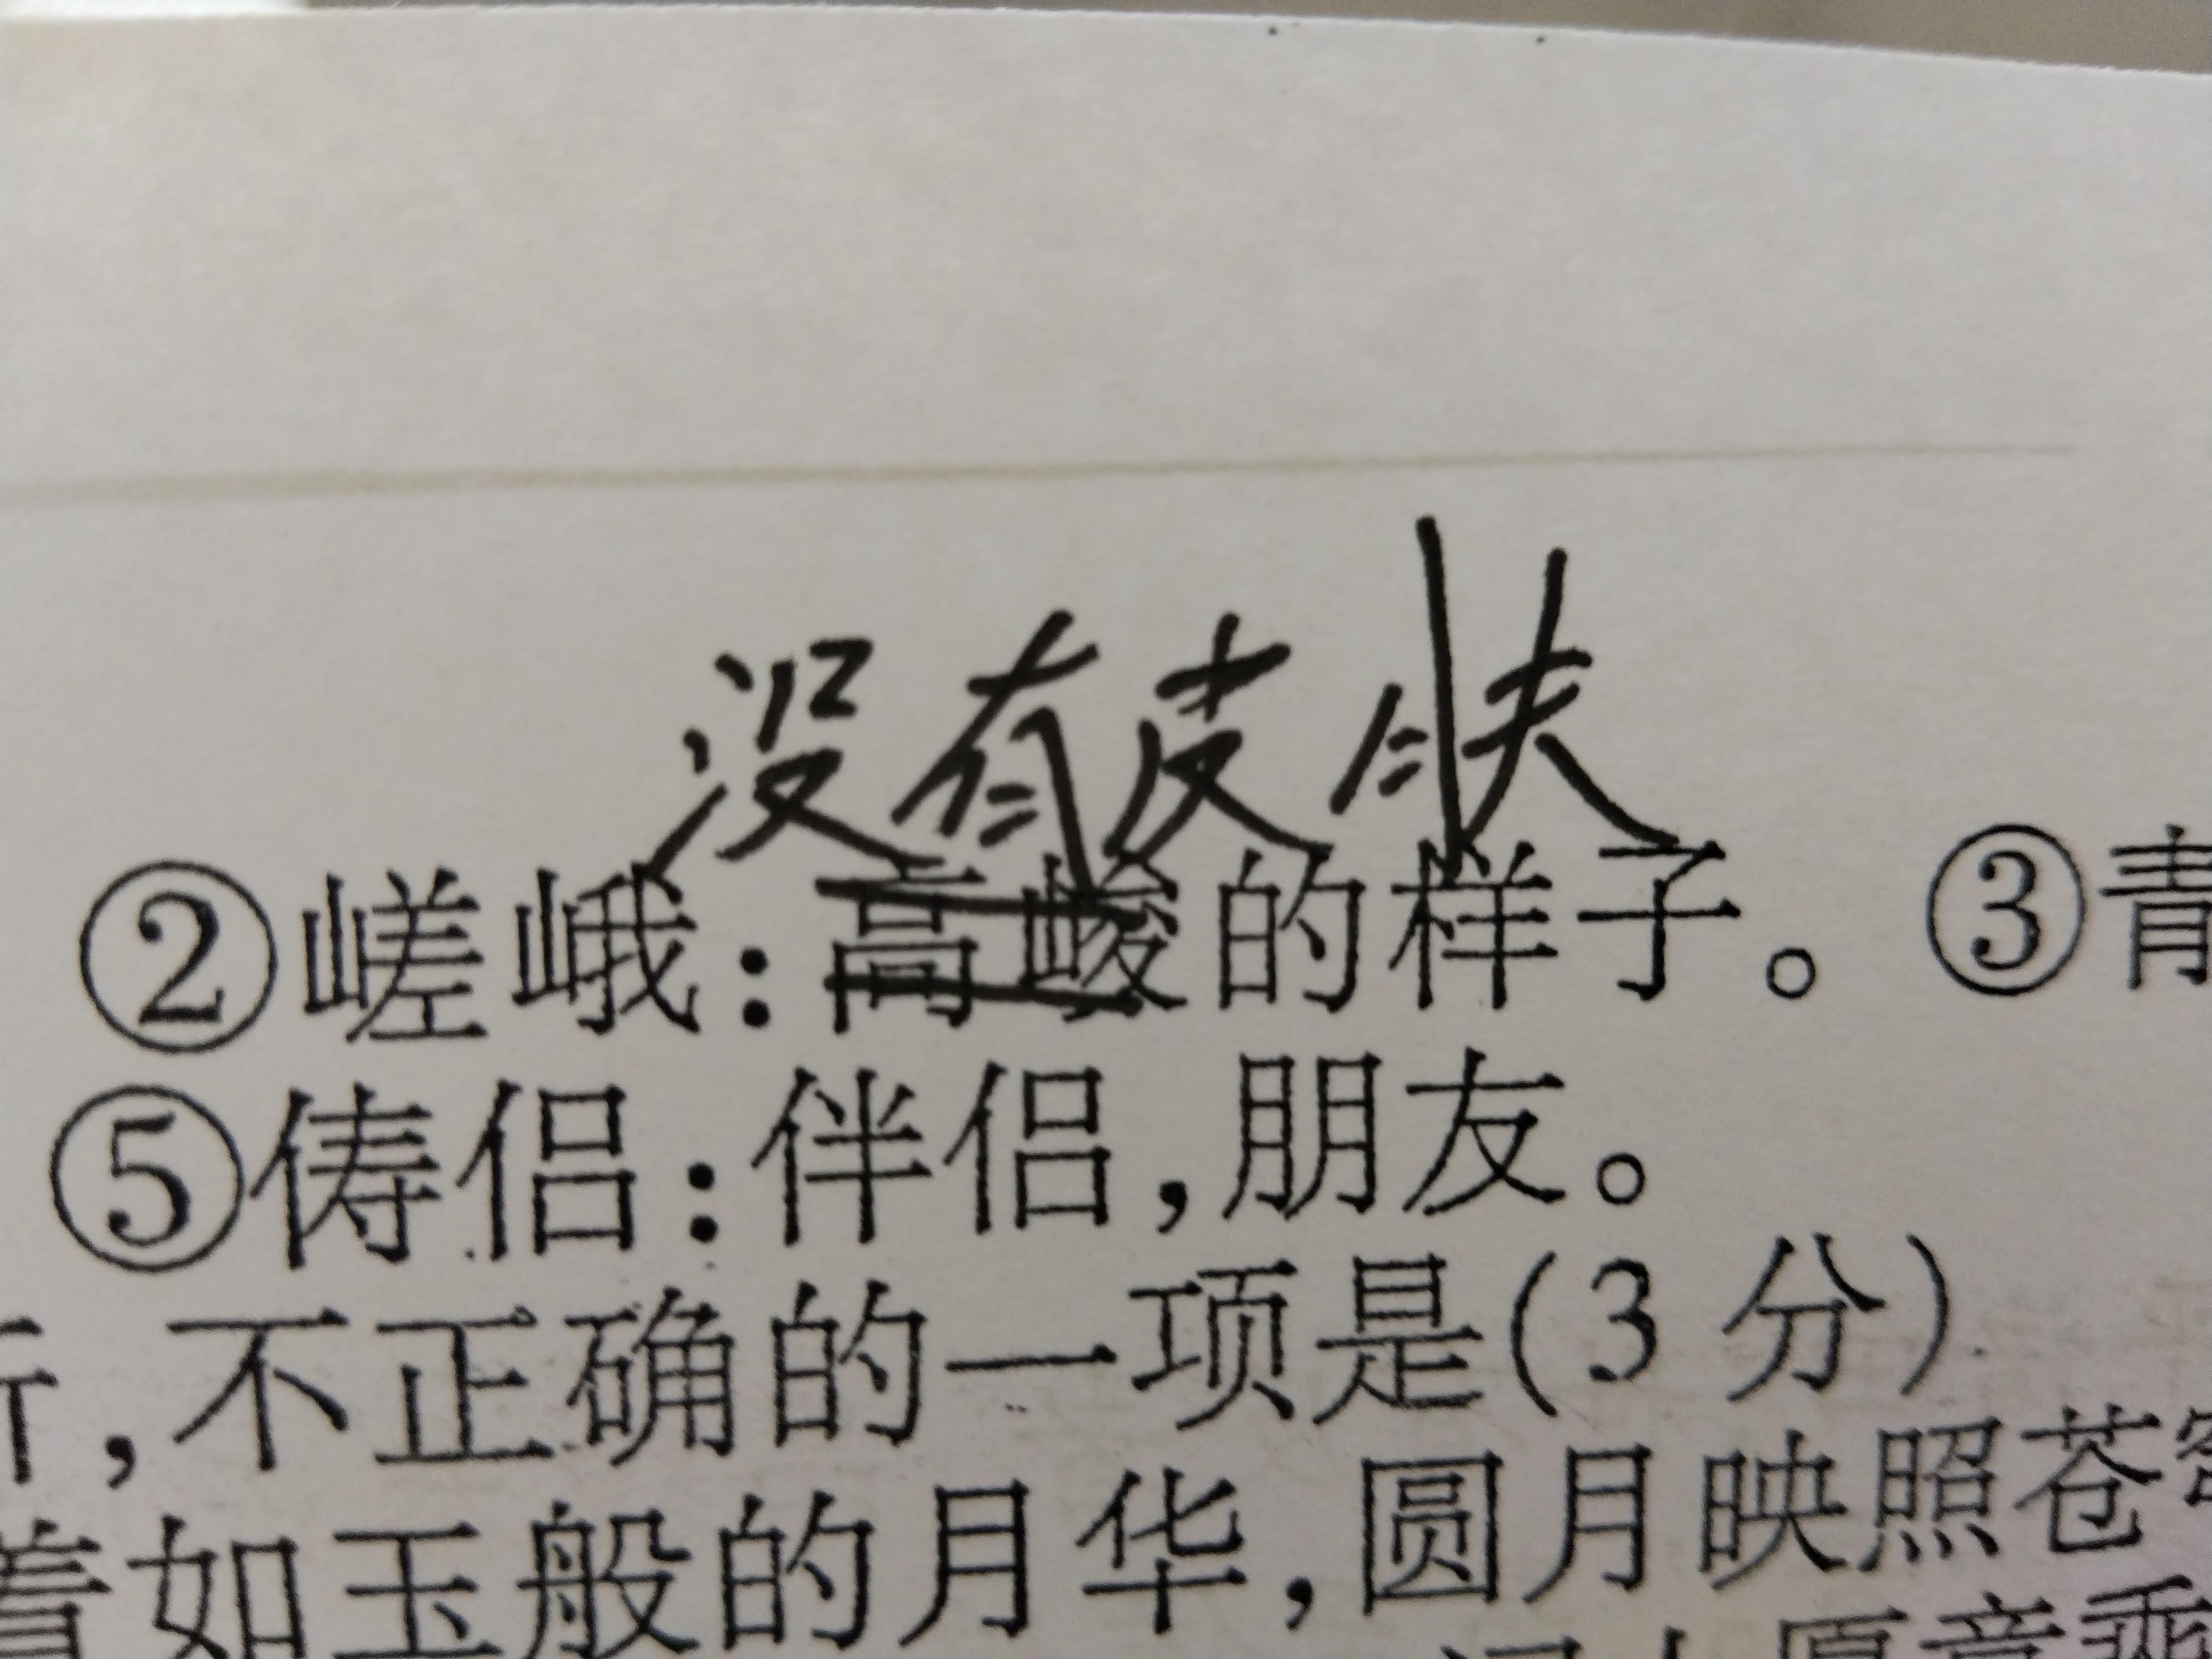 没有皮肤
②嵯峨:高峻的样子。③青
⑤俦侣:伴侣,朋友。
,不正确的一项是(3分)
着如玉般的月华,圆月映照苍
愿意乘